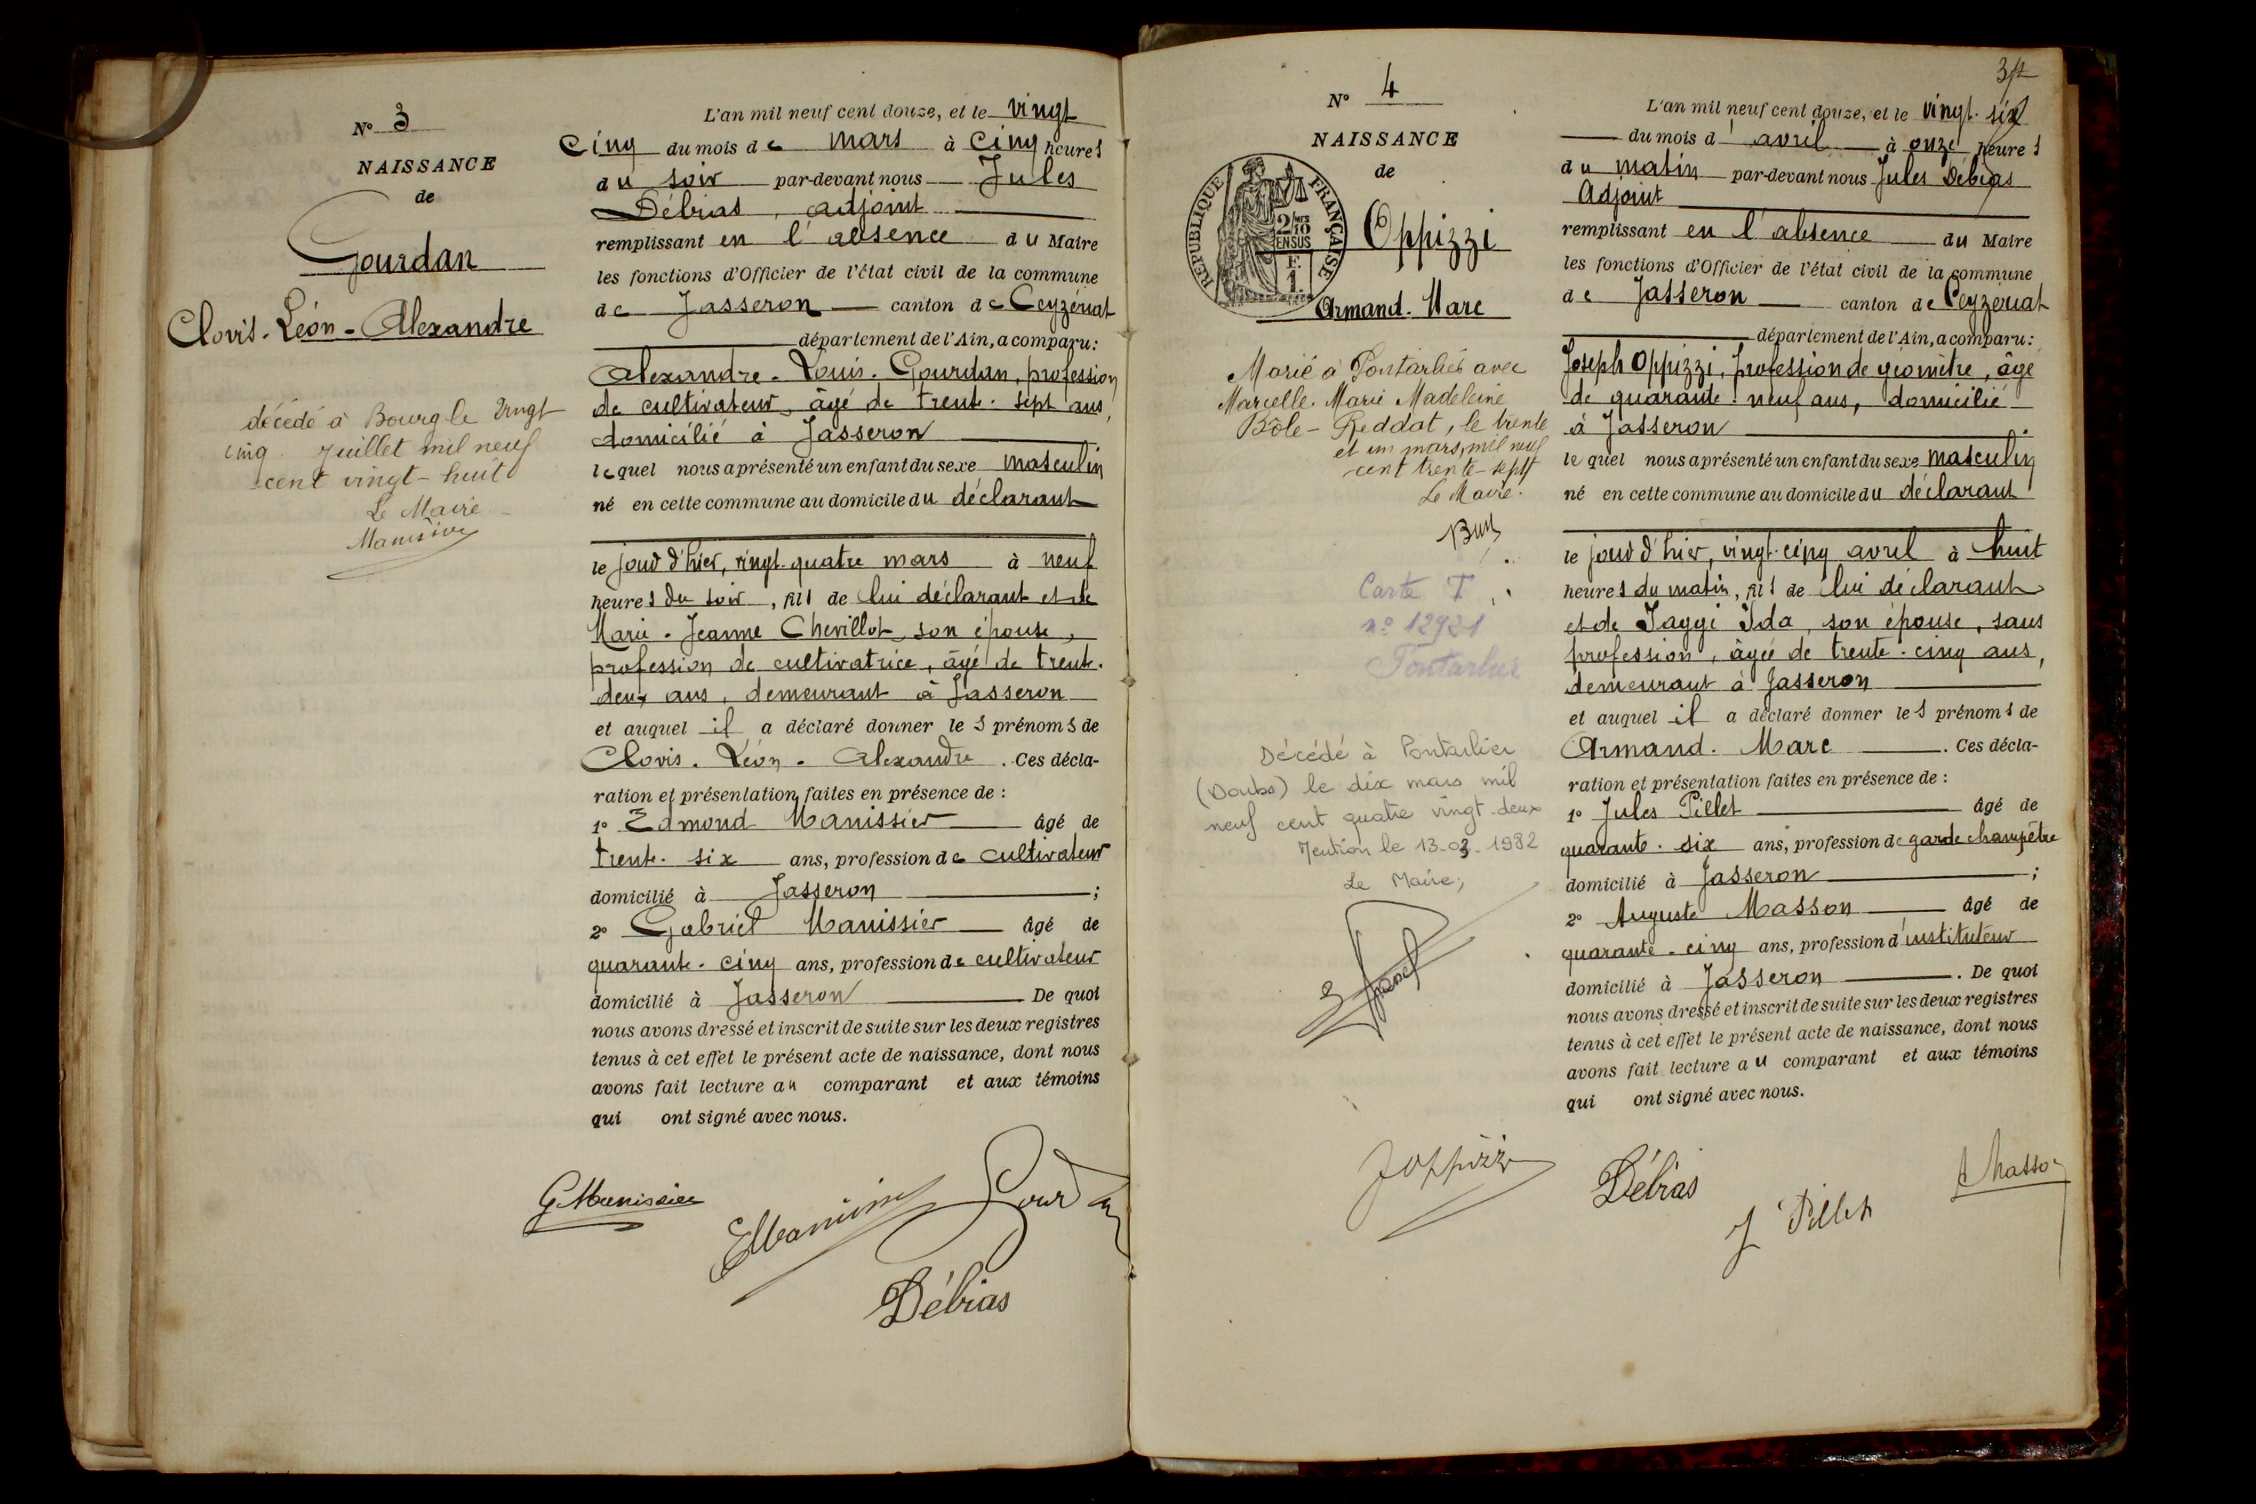 N° 3
NAISSANCE
de
Gourdan
Clovis-Léon-Alexandre
décédé à Bourg le vingt
cinq juillet mil neuf
cent vingt-huit
Le Maire
L'an mil neuf cent douze, et le vingt
cinq du mois de mars à cinq heures
du soir par-devant nous Jules
Débias, adjoint
remplissant en l'absence du Maire
les fonctions d'Officier de l'état civil de la commune
de Jasseron canton de Ceyzériat
département de l'Ain, a comparu:
Alexandre-Louis-Gourdan, profession
de cultivateur, âgé de trente-sept ans,
domicilié à Jasseron
lequel nous a présenté un enfant du sexe masculin
né en cette commune au domicile du déclarant
le jour d'hier, vingt-quatre mars à neuf
heures du soir, fils de lui déclarant et de
Marie-Jeanne Chevillot, son épouse,
profession de cultivatrice, âgé de trente-
deux ans, demeurant à Jasseron
et auquel il a déclaré donner les prénoms de
Clovis-Léon-Alexandre. Ces décla-
ration et présentation faites en présence de :
1° Edmond Manissier âgé de
trente-six ans, profession de cultivateur
domicilié à Jasseron ;
2° Gabriel Manissier âgé de
quarante-cinq ans, profession de cultivateur
domicilié à Jasseron De quoi
nous avons dressé et inscrit de suite sur les deux registres
tenus à cet effet le présent acte de naissance, dont nous
avons fait lecture au comparant et aux témoins
qui ont signé avec nous.
G Manissier
EManissier Gourdan
Débias
N° 4
NAISSANCE
de
RÉPUBLIQUE FRANÇAISE
2/10 EN SUS
F. 1.
Oppizzi
Armand-Marc
Marié à Pontarlier avec
Marcelle-Marie Madeleine
Bôle-Reddat, le trente
et un mars mil neuf
cent trente-sept
Le Maire.
Carte T
n° 12921
Pontarlier
Décédé à Pontarlier
(Doubs) le dix mars mil
neuf cent quatre vingt-deux
Mention le 13-03-1982
Le Maire,
L'an mil neuf cent douze, et le vingt-six
du mois d'avril à onze heures
du matin par-devant nous Jules Débias
Adjoint
remplissant en l'absence du Maire
les fonctions d'Officier de l'état civil de la commune
de Jasseron canton de Ceyzériat
département de l'Ain, a comparu:
Joseph Oppizzi, profession de géomètre, âgé
de quarante-neuf ans, domicilié
à Jasseron
lequel nous a présenté un enfant du sexe masculin
né en cette commune au domicile du déclarant
le jour d'hier, vingt-cinq avril à huit
heures du matin, fils de lui déclarant
et de Jaggi Ida, son épouse, sans
profession, âgée de trente-cinq ans,
demeurant à Jasseron
et auquel il a déclaré donner les prénoms de
Armand-Marc. Ces décla-
ration et présentation faites en présence de :
1° Jules Pillet âgé de
quarante-six ans, profession de garde champêtre
domicilié à Jasseron ;
2° Auguste Masson âgé de
quarante-cinq ans, profession d'instituteur
domicilié à Jasseron. De quoi
nous avons dressé et inscrit de suite sur les deux registres
tenus à cet effet le présent acte de naissance, dont nous
avons fait lecture au comparant et aux témoins
qui ont signé avec nous.
J Oppizzi
Débias
J Pillet
A Masson